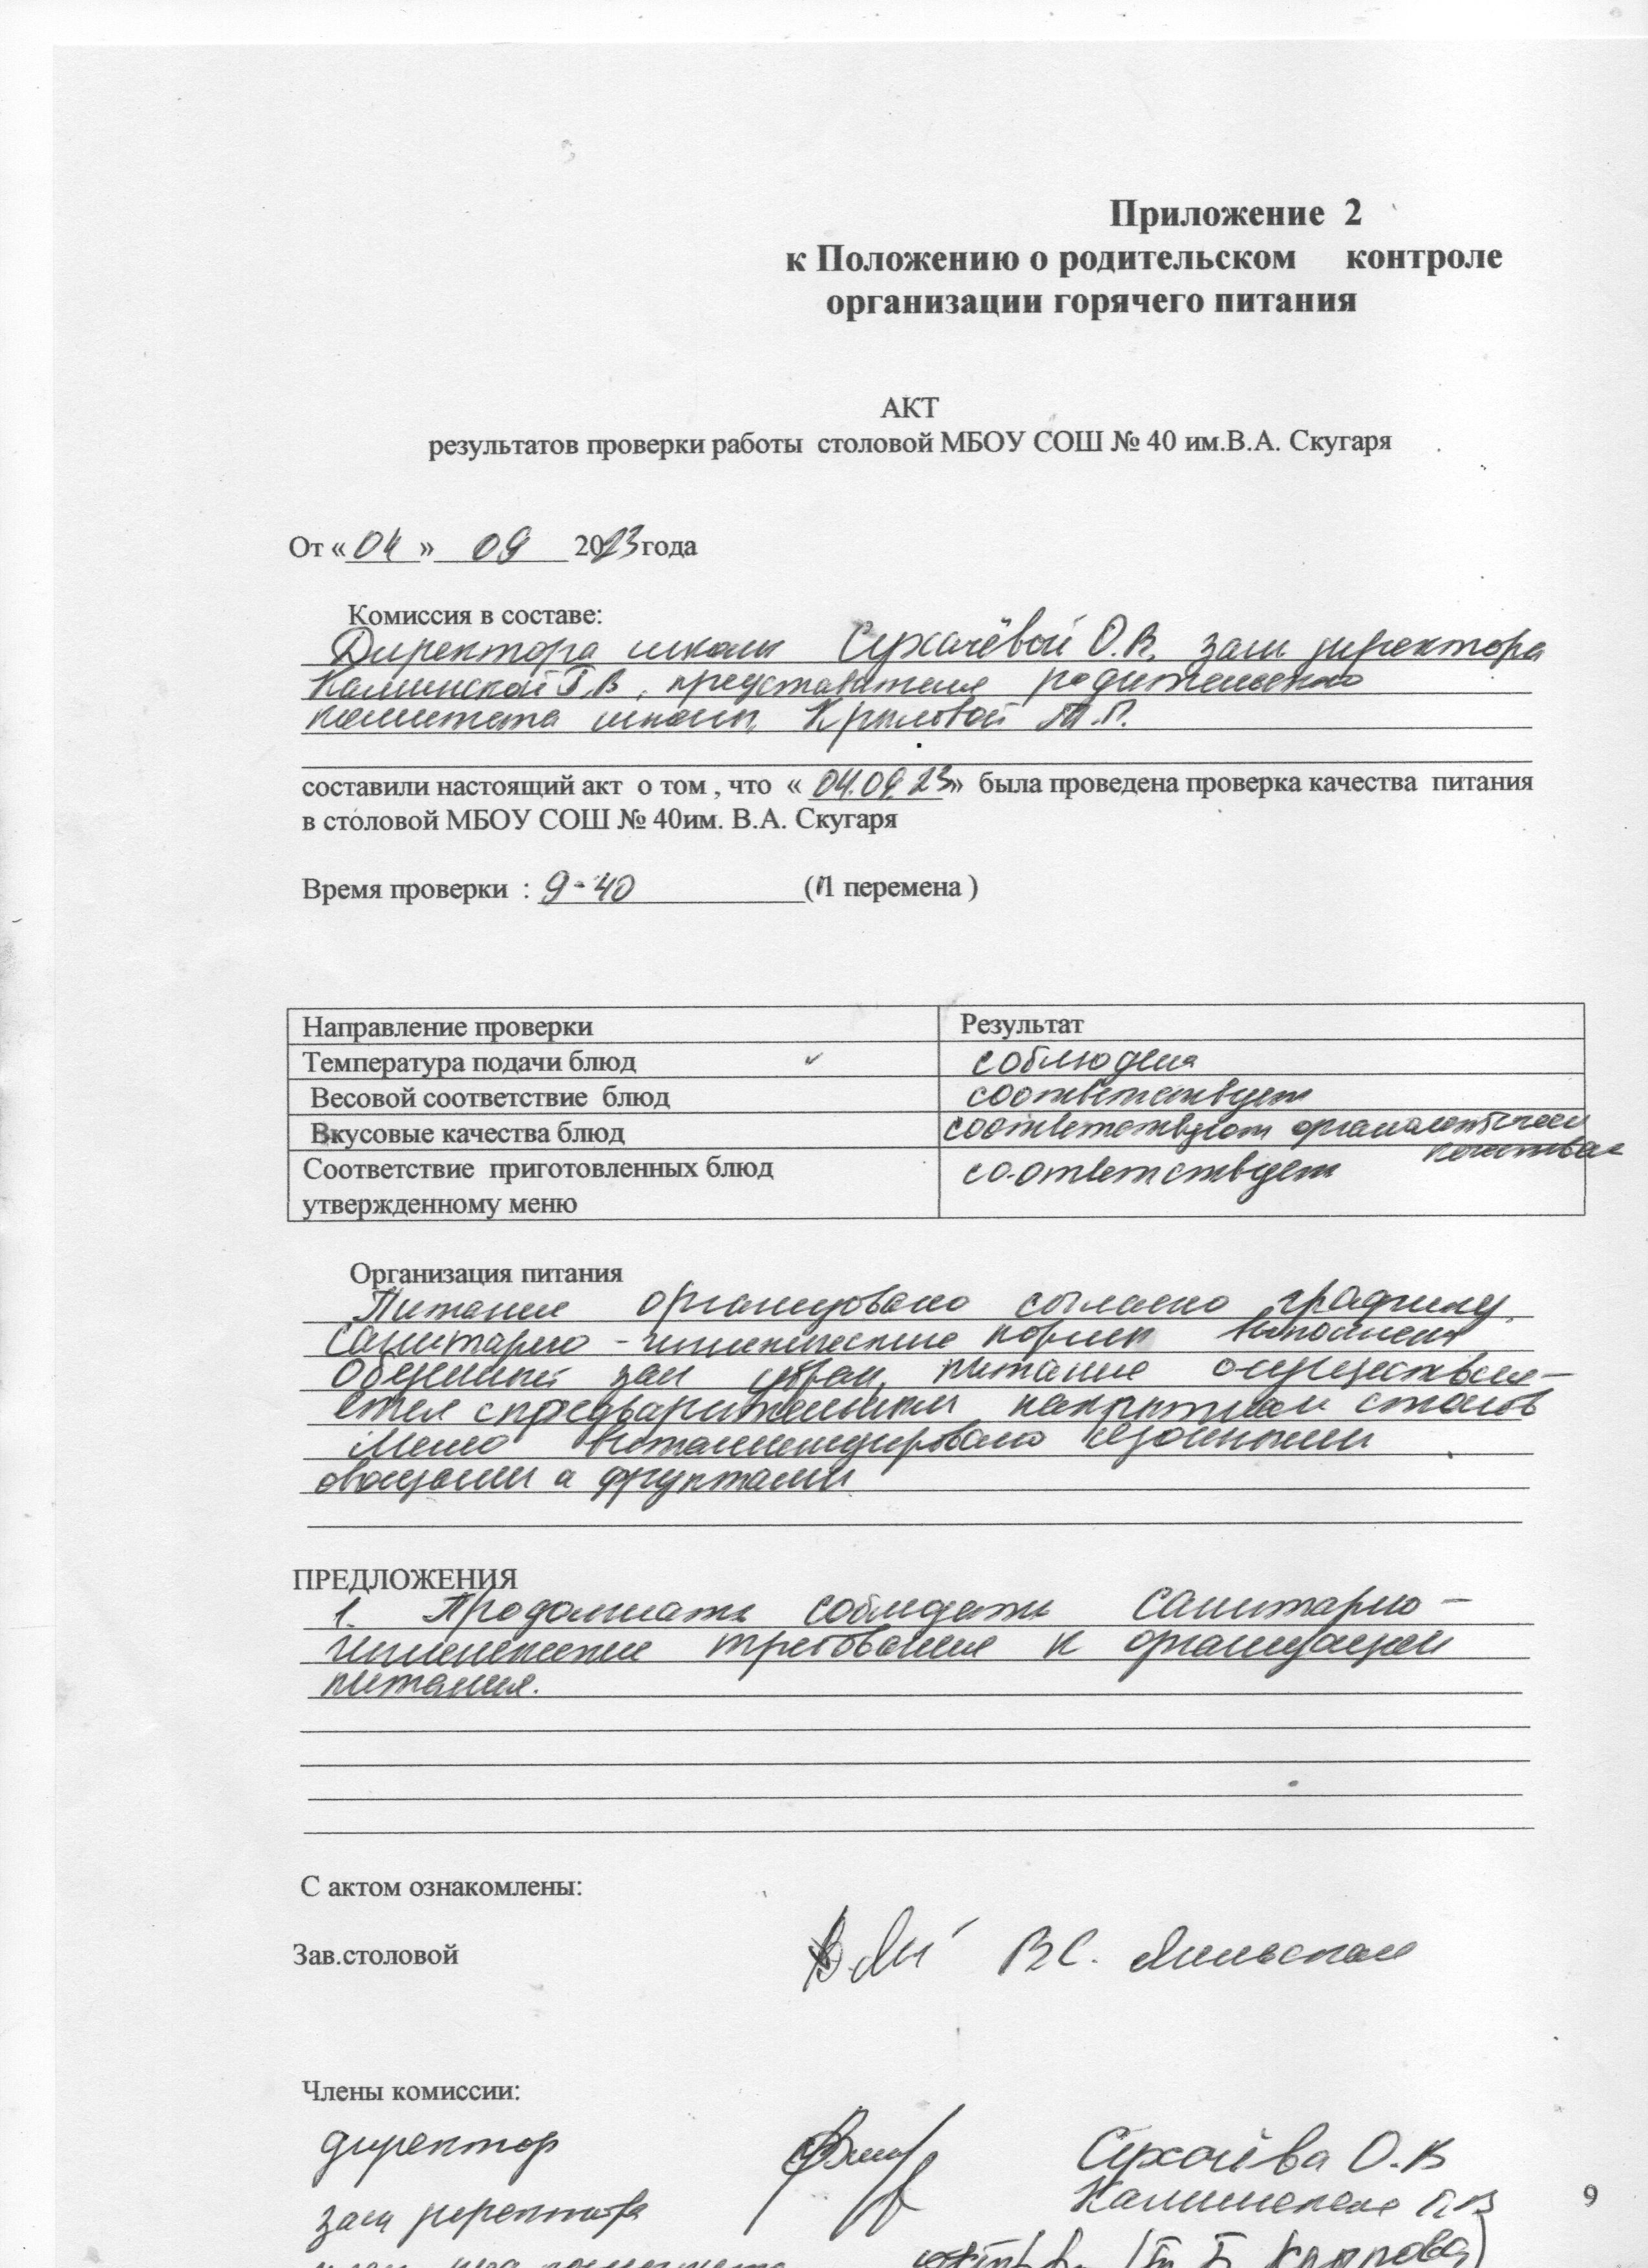 Приложение 2
к Положению о родительском контроле
организации горячего питания
АКТ
результатов проверки работы столовой МБОУ СОШ № 40 им.В.А. Скугаря
От «04» 09 2023 года
Комиссия в составе:
Директора школы Сухачёвой О.В. зам директора
Калинской Г.В, представителя родительского
комитета школы Крыловой Т.П.
составили настоящий акт о том , что « 04.09.23» была проведена проверка качества питания
в столовой МБОУ СОШ № 40им. В.А. Скугаря
Время проверки : 9-40 (1 перемена )
Направление проверки Результат
Температура подачи блюд соблюдена
Весовой соответствие блюд соответствует
Вкусовые качества блюд соответствуют
качествам
Соответствие приготовленных блюд соответствует
утвержденному меню
Организация питания
Питание организовано согласно графику
Санитарно-гигиенические нормы
Обеденный зал убран, питание осуществля-
ется с предварительным накрытием столов
Меню витаминизировано сезонными
овощами и фруктами
ПРЕДЛОЖЕНИЯ
1. Продолжать соблюдать санитарно-
гигиенические требования к организации
питания.
С актом ознакомлены:
Зав.столовой В.С.
Члены комиссии:
директор Сухачёва О.В
зам директора Калинская Г.В
9